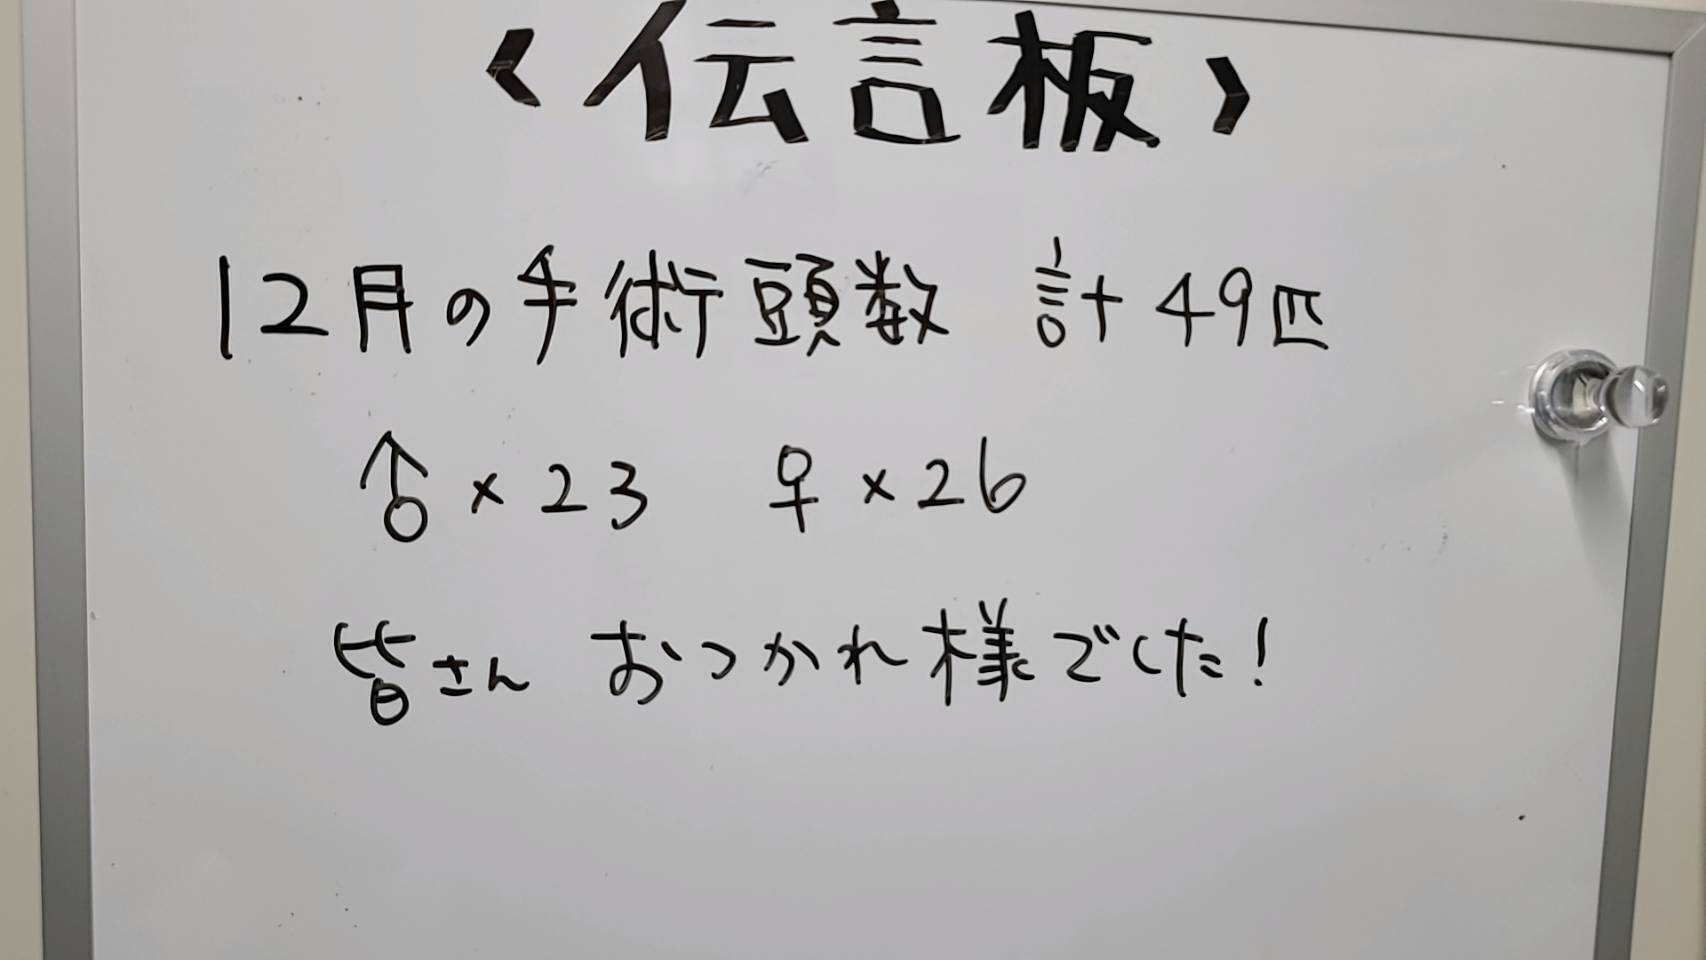 〈伝言板〉
12月の手術頭数 計49匹
♂×23 ♀×26
皆さん おつかれ様でした!